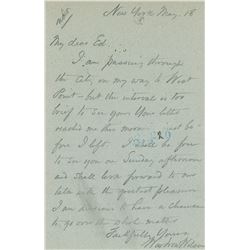 New York May. 18
My dear Ed.
I am passing through
the City, on my way to West
Point - but the interval is too
brief to see you. Your letter
reached me this noon
before I left. I shall be free
to see you on Sunday afternoon
and shall look forward to our
talk with the greatest pleasure.
I am anxious to have a chance
to go over the whole matter.
Faithfully Yours